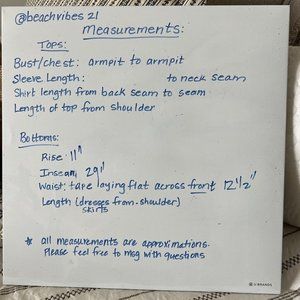 @beachvibes21
Measurements:
Tops:
Bust/chest: armpit to armpit
Sleeve Length: to neck seam
Shirt length from back seam to seam
Length of top from shoulder
Bottoms:
Rise 11"
Inseam 29"
Waist: tape laying flat across front 12 1/2"
Length (dresses from shoulder)
skirts
* all measurements are approximations.
Please feel free to msg with questions
U BRANDS